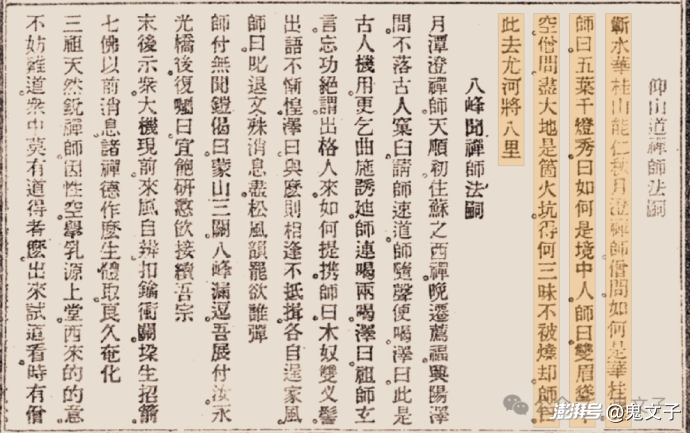 仰山道禪師法嗣
蘄水華桂山能仁秋月澄禪師僧問如何是華桂
師曰五葉千燈秀曰如何是境中人師曰雙眉
空僧問盡大地是箇火坑得何三昧不被燒却師
此去尤河將八里
八峰聞禪師法嗣
月潭澄禪師天順初住蘇之西禪晚遷薦福興陽澤
問不落古人窠臼請師速道師隨聲便喝澤曰此是
古人機用更乞曲施誘廸師連喝兩喝澤曰祖師玄
言忘功絕謂出格人來如何提攜師曰木奴雙义髻
出語不慚惶澤曰與麼則相逢不抵揖各自逞家風
師曰叱退文殊消息盡松風韻罷欲誰彈
師付無聞鎧偈曰蒙山三關八峰漏逗吾展付汝永
光橋後復囑曰宜能研慤飲接續吾宗
末後示衆大機現前來風自辨扣鐍衝關探生招箭
七佛以前消息諸禪德作麼生體取良久奄化
三祖天然銳禪師因性空舉乳源上堂西來的的意
不妨難道衆中莫有道得者麼出來試道看時有僧
澎湃号@鬼文子
文子